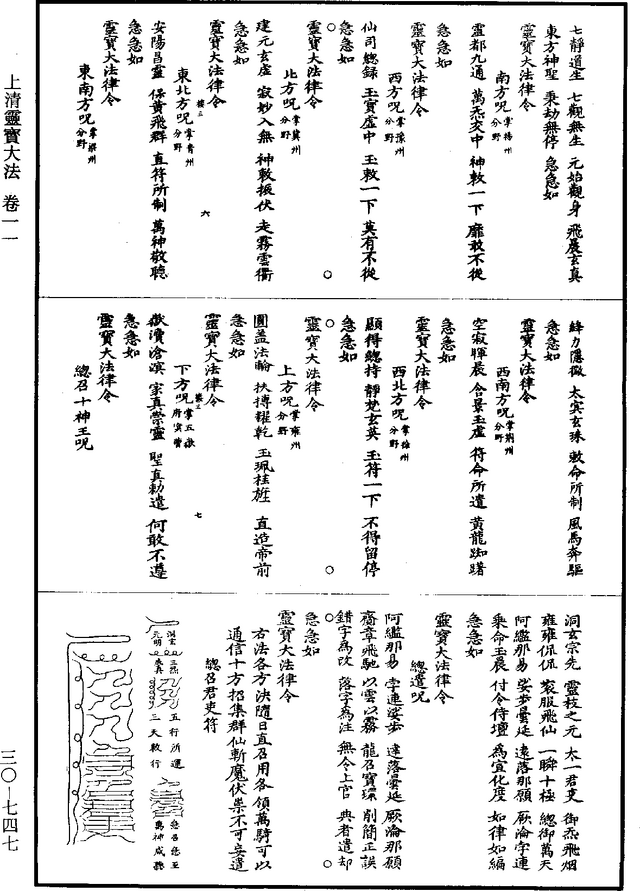 上清靈寶大法 卷一一
三〇—七四七
七靜道生 七觀無生 元始觀身 飛晨玄真
東方神聖 秉劫無停 急急如
靈寶大法律令
南方呪 掌揚州分野
靈都九通 萬炁交中 神敕一下 靡敢不從
急急如
靈寶大法律令
西方呪 掌豫州分野
仙司總録 玉寶虛中 玉敕一下 莫有不從
急急如
靈寶大法律令
北方呪 掌冀州分野
建元玄虛 寂妙入無 神敕振伏 走霧雲衢
急急如
靈寶大法律令
東北方呪 掌青州分野
六
安陽昌靈 保黃飛群 直符所制 萬神敬聽
急急如
靈寶大法律令
東南方呪 分野
鋒力隱微 太冥玄珠 敕命所制 風馬奔驅
急急如
靈寶大法律令
西南方呪 掌荆州分野
空寂暉晨 合景玉虛 符命所遣 黃龍踟躇
急急如
靈寶大法律令
西北方呪 掌雍州分野
顯得總持 靜梵玄英 玉符一下 不得留停
急急如
靈寶大法律令
上方呪 分野
圓蓋法輪 扶摶耀乾 玉珮桂旌 直造帝前
急急如
靈寶大法律令
下方呪 掌五嶽
七
嶽瀆滄溟 寥真崇靈 聖真勅遣 何敢不遵
急急如
靈寶大法律令
總召十神王呪
洞玄宗先 靈枝之元 太一君吏 御炁飛烟
雍雍侃侃 衮服飛仙 一瞬十極 總御萬天
阿緼那易 娑步曇延 遠落那願 厥淪字連
乘命玉晨 付令侍壇 為宣化度 如律如編
急急如
靈寶大法律令
總遣呪
阿緼那易 孛連娑步 遠落曇延 厥淪那願
齋章飛馳 以雲以霧 龍召寶環 削簡正誤
錯字為改 落字為注 無令上官 典者遣却
急急如
靈寶大法律令
右法各方決隨日直召用各領萬騎可以
通信十方招集群仙斬魔伏祟不可妄遣
總召君吏符
元明
三炁
五行所運
三天敕行
急召急至
萬神咸聽